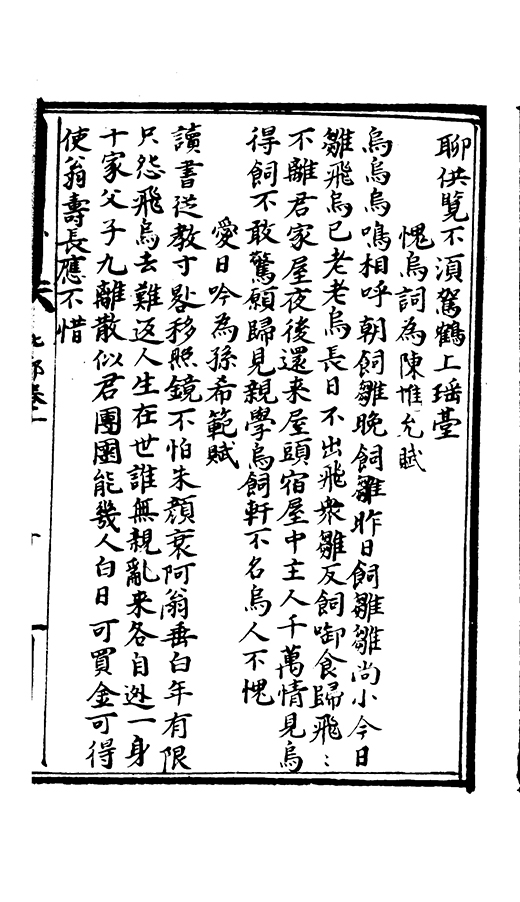 聊供覽不湏駕鶴上瑶臺
愧烏詞為陳惟允賦
烏烏烏鳴相呼朝飼雛晚飼雛昨日飼雛雛尚小今日
雛飛烏已老老烏長日不出飛衆雛反飼啣食歸飛〻
不離君家屋夜後還来屋頭宿屋中主人千萬情見烏
得飼不敢驚願歸見親學烏飼軒不名烏人不愧
愛日吟為孫希範賦
讀書從教寸晷移照鏡不怕朱顔衰阿翁垂白年有限
只怨飛烏去難返人生在世誰無親亂来各自逃一身
十家父子九離散似君團圞能幾人白日可買金可得
使翁壽長應不惜